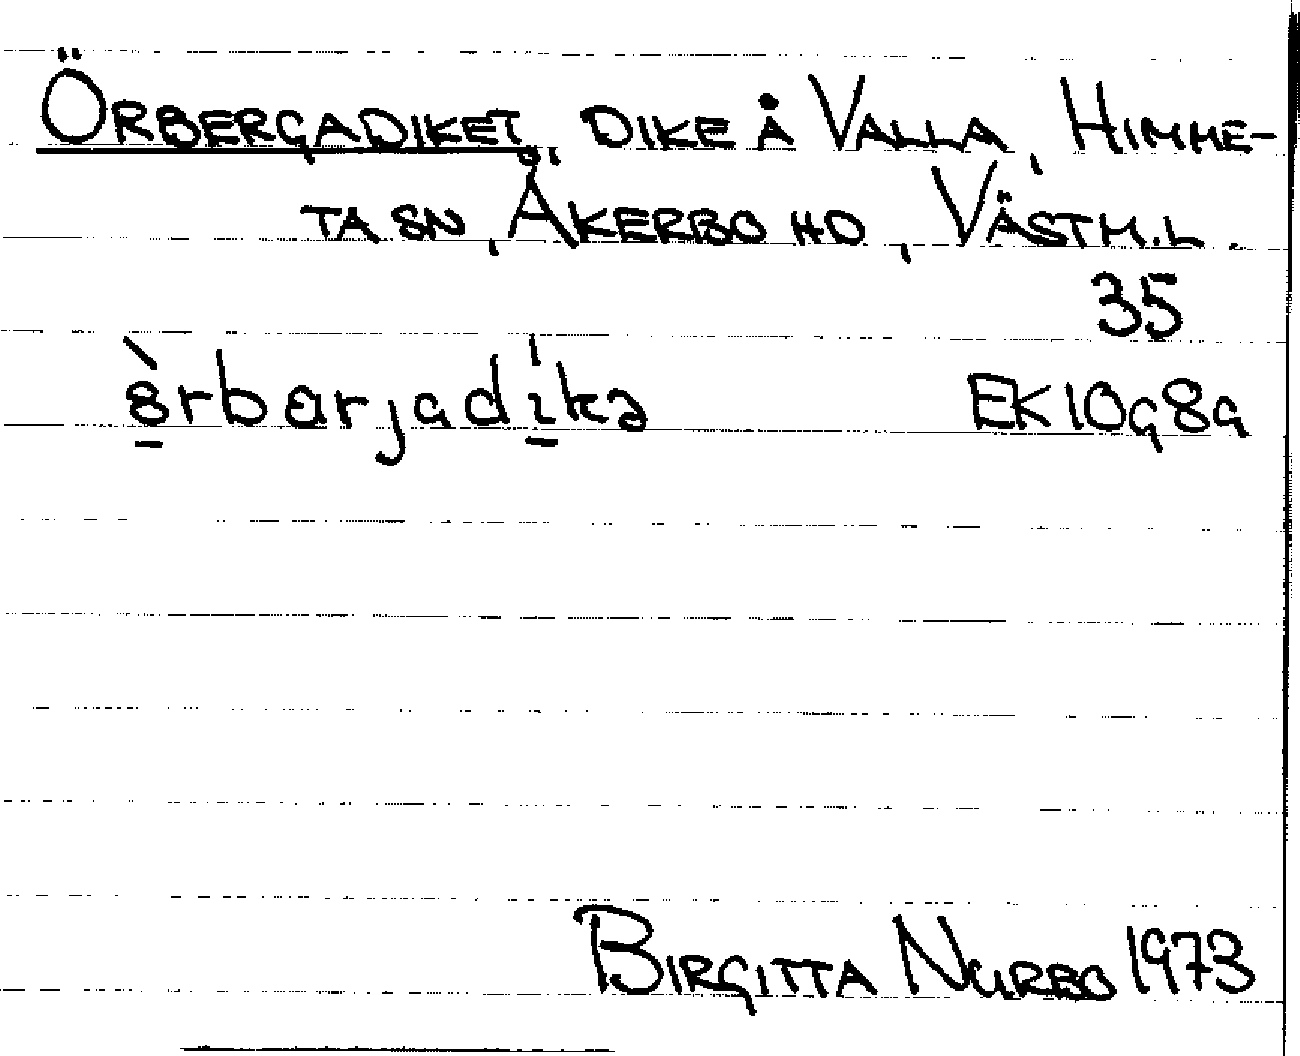 Örbergadiket, dike å Valla, Himme-
ta sn, Åkerbo hd, Västm.l.
35
ö̀rbarjadíkə EK10g8a
Birgitta Nurbo 1973